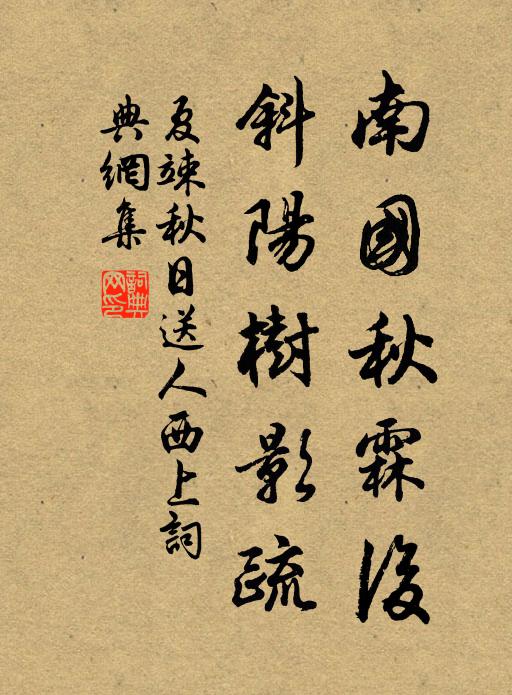 南國秋霖後
斜陽樹影疏
夏竦秋日送人西上詞
典網集
詞典网印